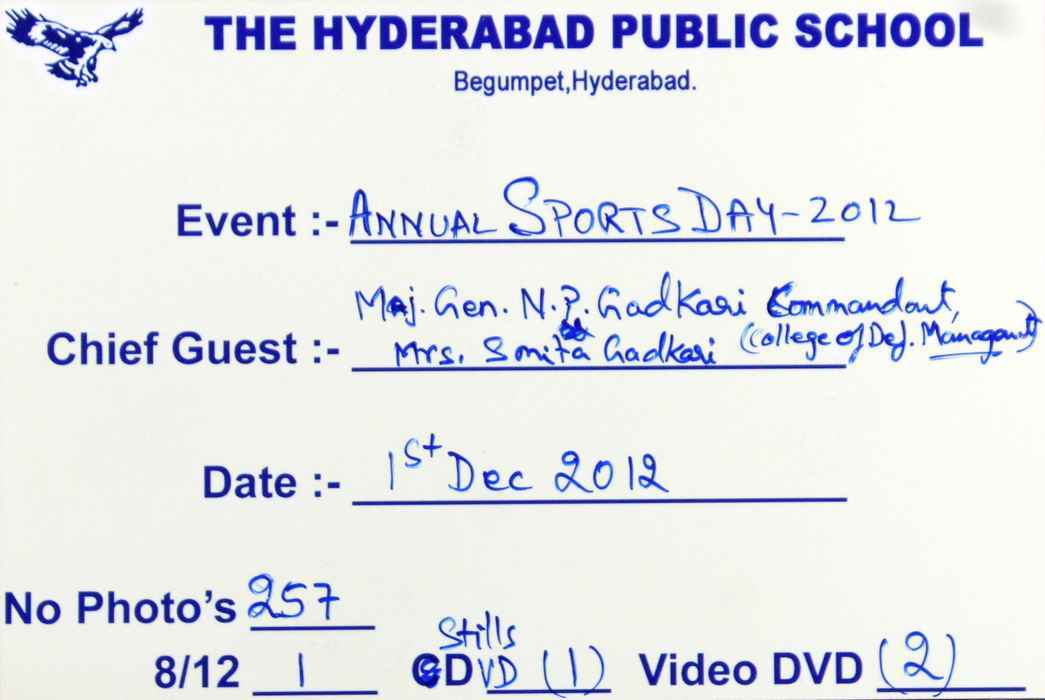 THE HYDERABAD PUBLIC SCHOOL
Begumpet,Hyderabad.
Event :- ANNUAL SPORTS DAY-2012
Maj. Gen. N.P. Gadkari Commandant,
Chief Guest :- Mrs. Smita Gadkari (College of Def. Management)
Date :- 1st Dec 2012
No Photo's 257
Stills
8/12 1 DVD (1) Video DVD (2)